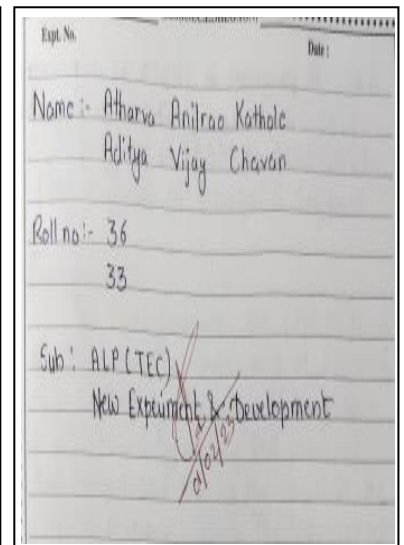 Expt. No.
Date :
Name :- Atharva Anilrao Kathole
Aditya Vijay Chavan
Roll no :- 36
33
Sub : ALP (TEC)
New Expeiment & Development